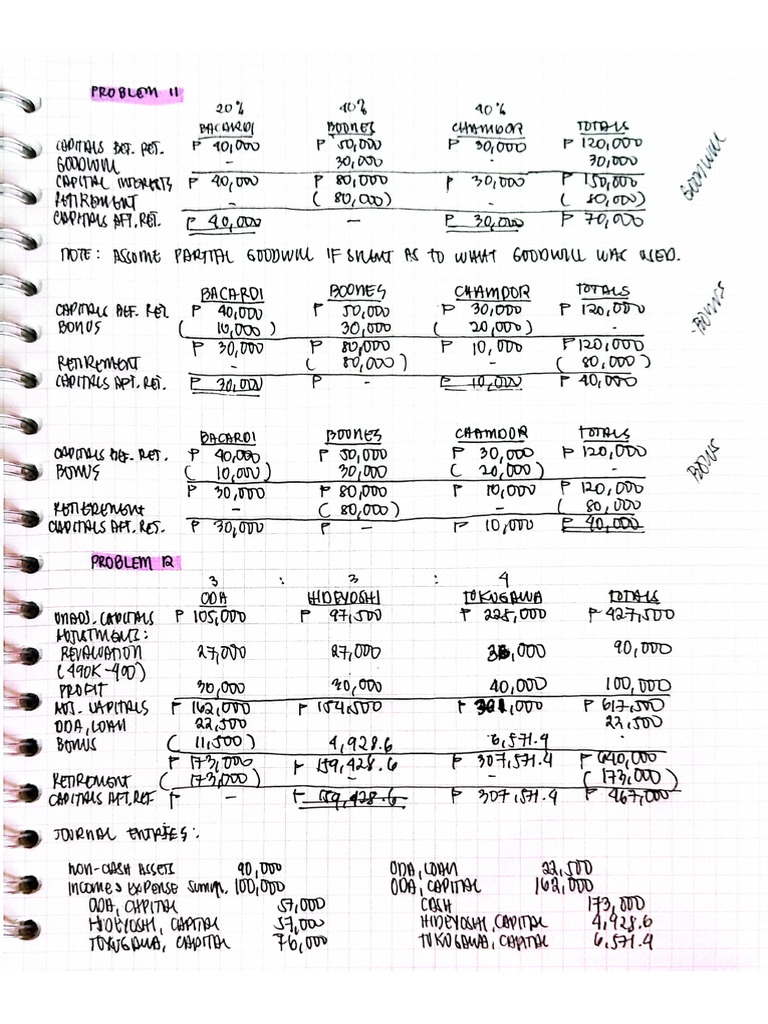 PROBLEM 11
20% 40% 40%
BACARDI BOONES CHAMDOR TOTALS
CAPITALS BEF. RET. ₱ 40,000 ₱ 50,000 ₱ 30,000 ₱ 120,000
GOODWILL - 30,000 - 30,000
CAPITAL INTERESTS ₱ 40,000 ₱ 80,000 ₱ 30,000 ₱ 150,000
RETIREMENT - ( 80,000) - ( 80,000)
CAPITALS AFT. RET. ₱ 40,000 - ₱ 30,000 ₱ 70,000
GOODWILL
NOTE: ASSUME PARTIAL GOODWILL IF SILENT AS TO WHAT GOODWILL WAS USED.
BACARDI BOONES CHAMDOR TOTALS
CAPITALS BEF. RET. ₱ 40,000 ₱ 50,000 ₱ 30,000 ₱ 120,000
BONUS ( 10,000) 30,000 ( 20,000) -
₱ 30,000 ₱ 80,000 ₱ 10,000 ₱ 120,000
RETIREMENT - ( 80,000) - ( 80,000)
CAPITALS AFT. RET. ₱ 30,000 ₱ - ₱ 10,000 ₱ 40,000
BONUS
BACARDI BOONES CHAMDOR TOTALS
CAPITALS BEF. RET. ₱ 40,000 ₱ 50,000 ₱ 30,000 ₱ 120,000
BONUS ( 10,000) 30,000 ( 20,000) -
₱ 30,000 ₱ 80,000 ₱ 10,000 ₱ 120,000
RETIEREMENT - ( 80,000) - ( 80,000)
CAPITALS AFT. RET. ₱ 30,000 ₱ - ₱ 10,000 ₱ 40,000
BONUS
PROBLEM 12
3 : 3 : 4
ODA HIDEYOSHI TOKUGAWA TOTALS
UNADJ. CAPITALS ₱ 105,000 ₱ 97,500 ₱ 225,000 ₱ 427,500
ADJUSTMENTS:
REVALUATION 27,000 27,000 36,000 90,000
(490K-400)
PROFIT 30,000 30,000 40,000 100,000
ADJ. CAPITALS ₱ 162,000 ₱ 154,500 ₱ 301,000 ₱ 617,500
ODA, LOAN 22,500 22,500
BONUS ( 11,500) 4,928.6 6,571.4 -
₱ 173,000 ₱ 159,428.6 ₱ 307,571.4 ₱ 640,000
RETIREMENT ( 173,000) - - ( 173,000)
CAPITALS AFT. RET ₱ - ₱ 159,428.6 ₱ 307,571.4 ₱ 467,000
JOURNAL ENTRIES:
NON-CASH ASSETS 90,000 ODA, LOAN 22,500
INCOME & EXPENSE SUMM. 100,000 ODA, CAPITAL 162,000
ODA, CAPITAL 57,000 CASH 173,000
HIDEYOSHI, CAPITAL 57,000 HIDEYOSHI, CAPITAL 4,928.6
TOKUGAWA, CAPITAL 76,000 TOKUGAWA, CAPITAL 6,571.4